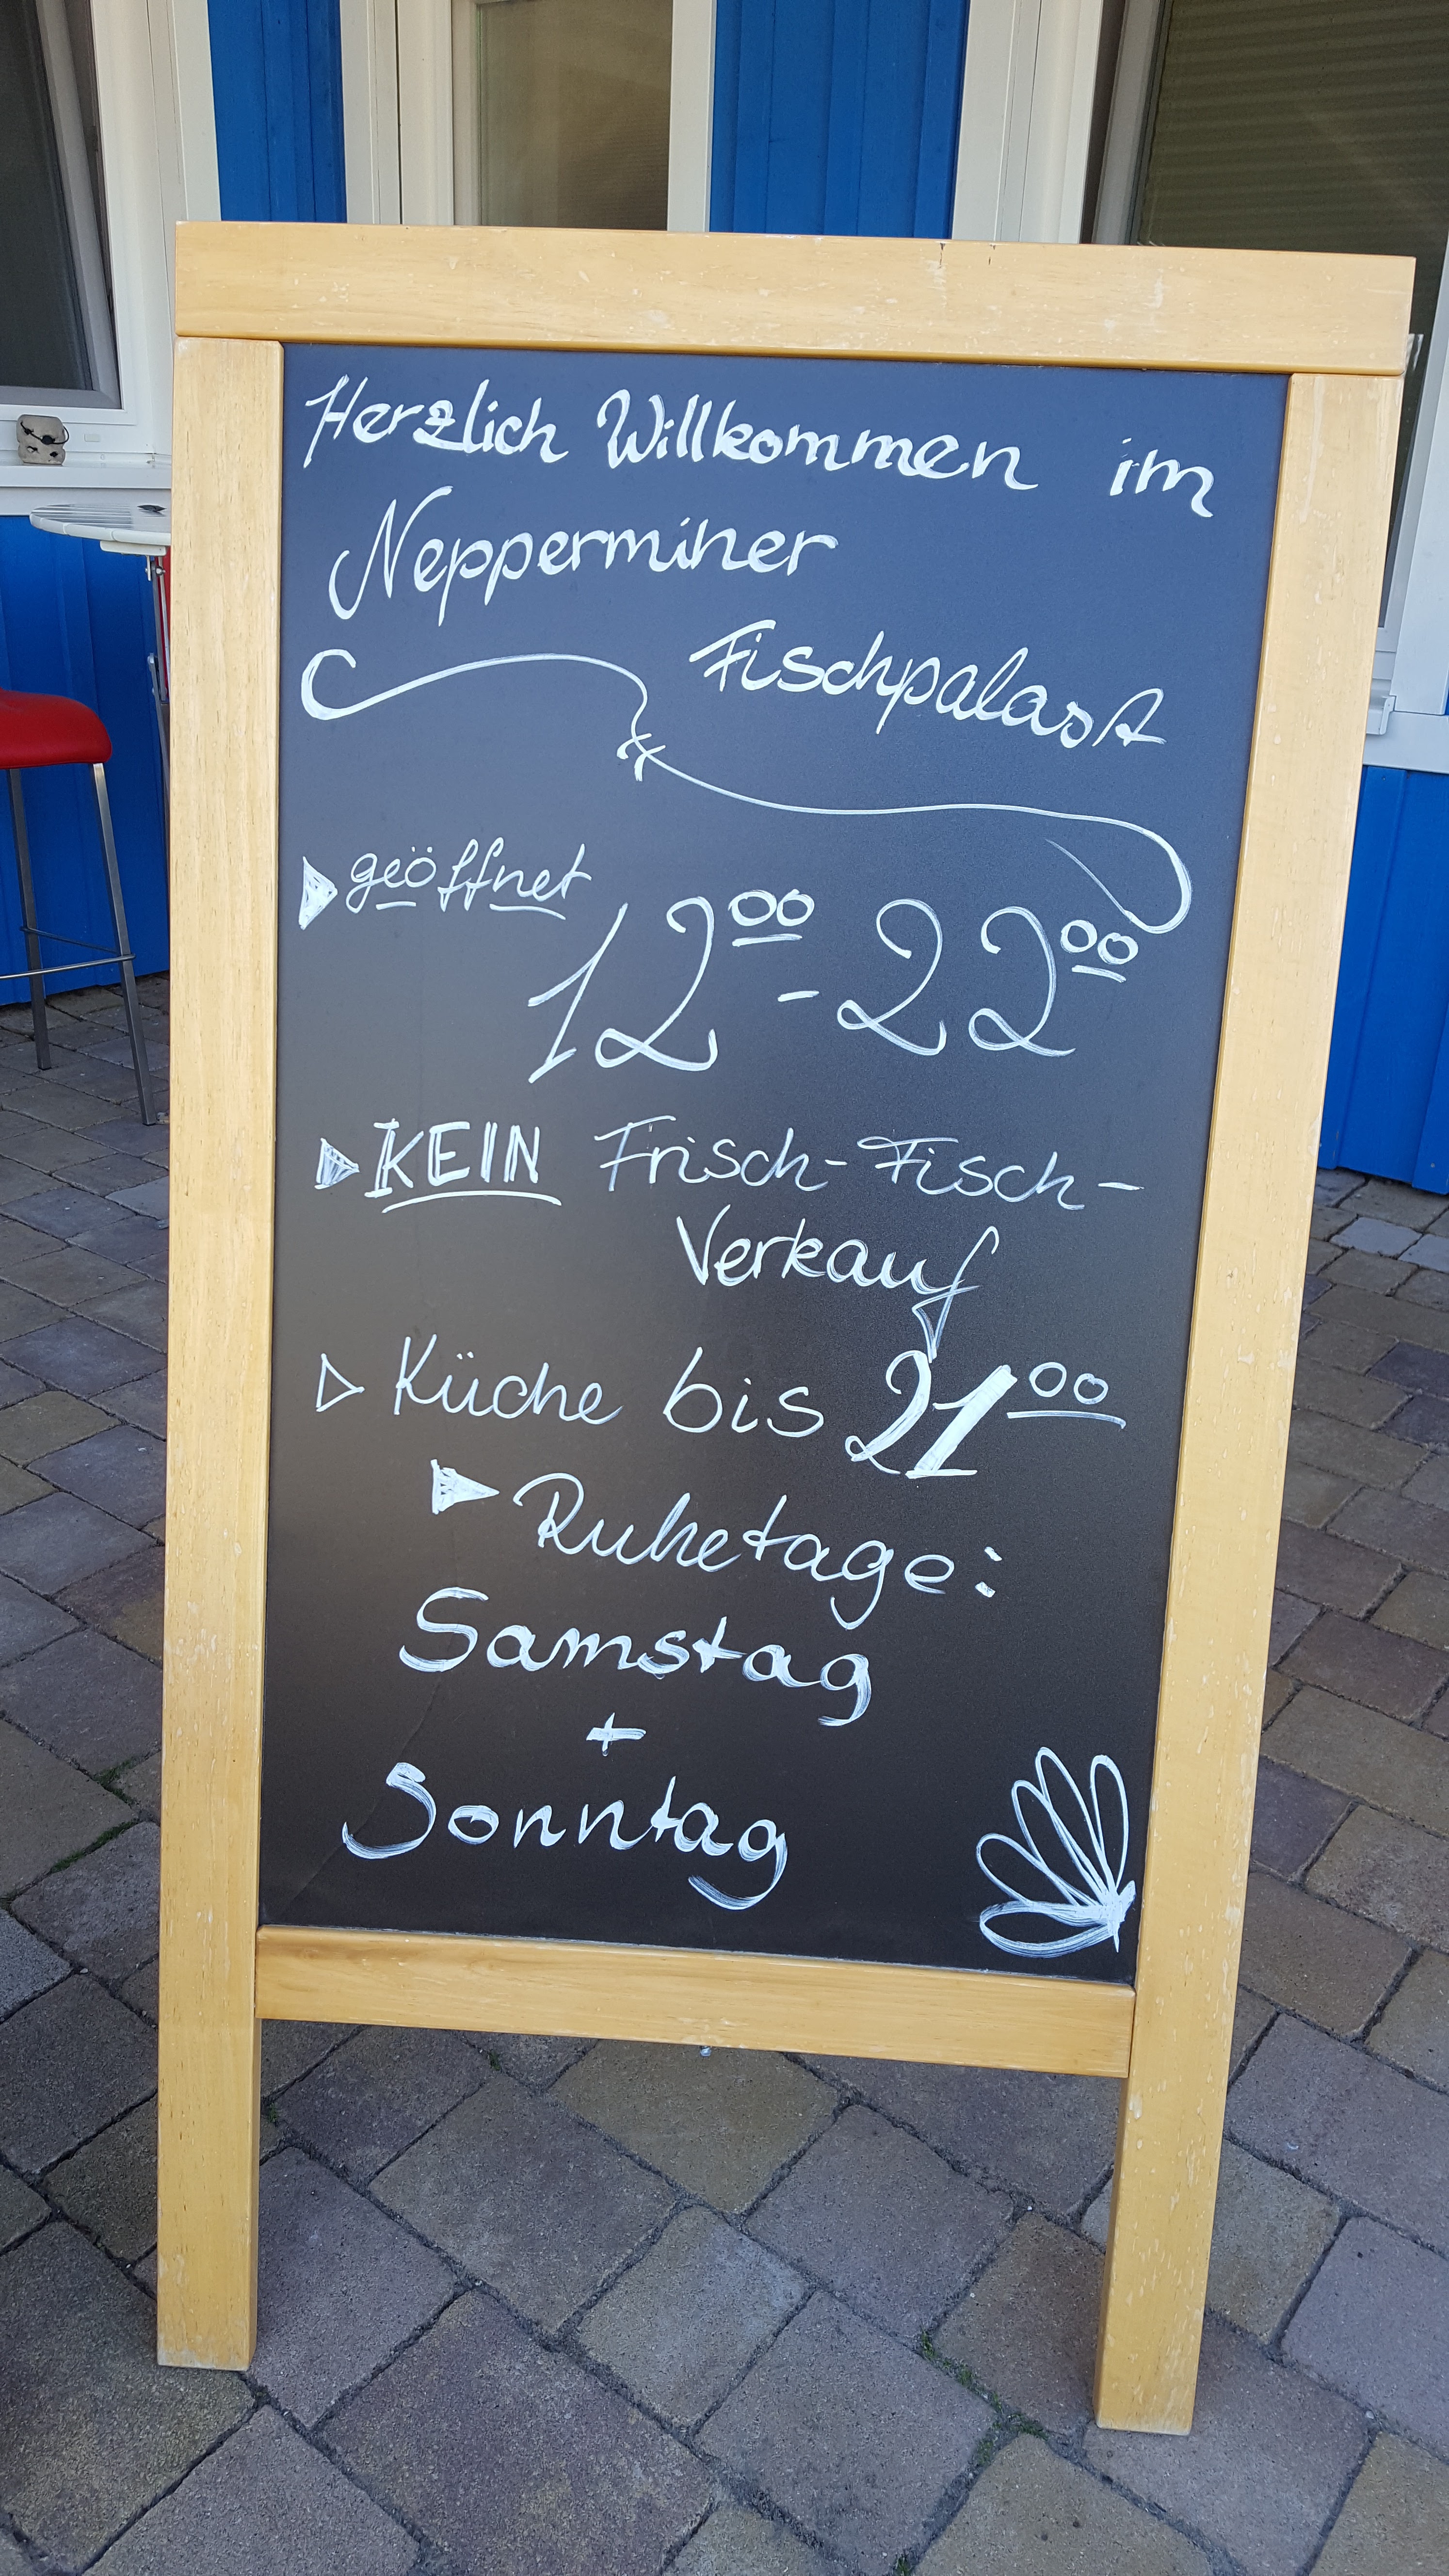 Herzlich Willkommen im
Nepperminer
Fischpalast
geöffnet
12⁰⁰ - 22⁰⁰
KEIN Frisch-Fisch-
Verkauf
Küche bis 21⁰⁰
Ruhetage:
Samstag
+
Sonntag